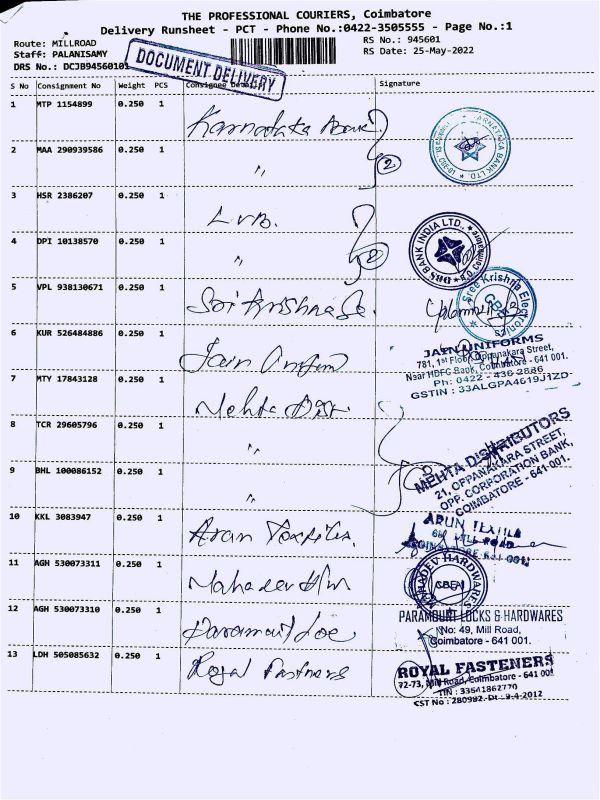 THE PROFESSIONAL COURIERS, Coimbatore
Delivery Runsheet - PCT - Phone No.:0422-3505555 - Page No.:1
Route: MILLROAD
RS No.: 945601
Staff: PALANISAMY
RS Date: 25-May-2022
DRS No.: DCJB94560101
DOCUMENT DELIVERY
S No Consignment No Weight PCS Consignee Details Signature
1 MTP 1154899 0.250 1 Karnataka Bank
2 MAA 290939586 0.250 1 〃 2
KARNATAKA BANK LTD.
3 HSR 2386207 0.250 1 LVB.
4 DPI 10138570 0.250 1 〃 2
DBS BANK INDIA LTD.
5 VPL 938130671 0.250 1 Sri Krishna
Sree Krishna Electronics
CBE
6 KUR 526484886 0.250 1 Jain Uniform
JAIN UNIFORMS
781, 1st Floor, Oppanakara Street,
Near HDFC Bank, Coimbatore - 641 001.
Ph: 0422 - 436 2886
GSTIN : 33ALGPA4619J1ZD
7 MTY 17843128 0.250 1 Mehta Dist
8 TCR 29605796 0.250 1 〃
9 BHL 100086152 0.250 1 〃
MEHTA DISTRIBUTORS
21, OPPANAKARA STREET,
OPP. CORPORATION BANK,
COIMBATORE - 641 001.
10 KKL 3083947 0.250 1 Arun Textiles.
ARUN TEXTILE
MILL ROAD
11 AGH 530073311 0.250 1 Mahadev H/w
MAHADEV HARDWARES
CBE-1
12 AGH 530073310 0.250 1 Paramount Loc
PARAMOUNT LOCKS & HARDWARES
No: 49, Mill Road,
Coimbatore - 641 001.
13 LDH 505085632 0.250 1 Royal Fastners
ROYAL FASTENERS
72-73, Mill Road, Coimbatore - 641 001
TIN : 33541862770
CST No : 280982. Dt - 9-4-2012